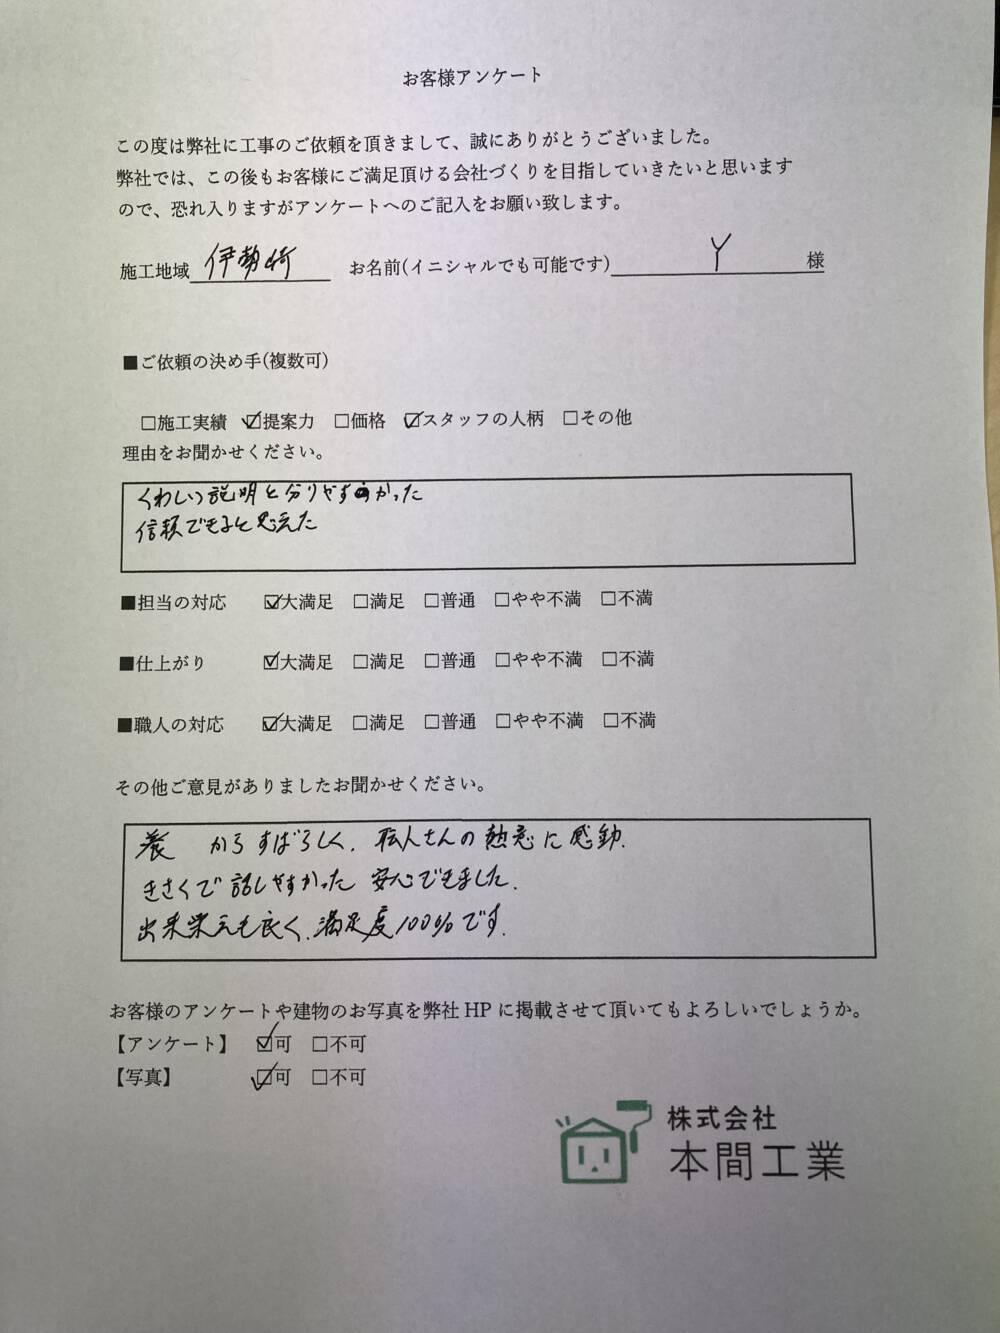 お客様アンケート
この度は弊社に工事のご依頼を頂きまして、誠にありがとうございました。
弊社では、この後もお客様にご満足頂ける会社づくりを目指していきたいと思います
ので、恐れ入りますがアンケートへのご記入をお願い致します。
施工地域 伊勢崎 お名前(イニシャルでも可能です) Y 様
■ご依頼の決め手(複数可)
□施工実績 ☑提案力 □価格 ☑スタッフの人柄 □その他
理由をお聞かせください。
くわしい説明と分りやすかった
信頼できると思えた
■担当の対応 ☑大満足 □満足 □普通 □やや不満 □不満
■仕上がり ☑大満足 □満足 □普通 □やや不満 □不満
■職人の対応 ☑大満足 □満足 □普通 □やや不満 □不満
その他ご意見がありましたお聞かせください。
からすばらしく、職人さんの熱意に感動.
きさくで話しやすかった 安心できました.
出来栄えも良く、満足度100%です.
お客様のアンケートや建物のお写真を弊社HPに掲載させて頂いてもよろしいでしょうか。
【アンケート】 ☑可 □不可
【写真】 ☑可 □不可
株式会社
本間工業